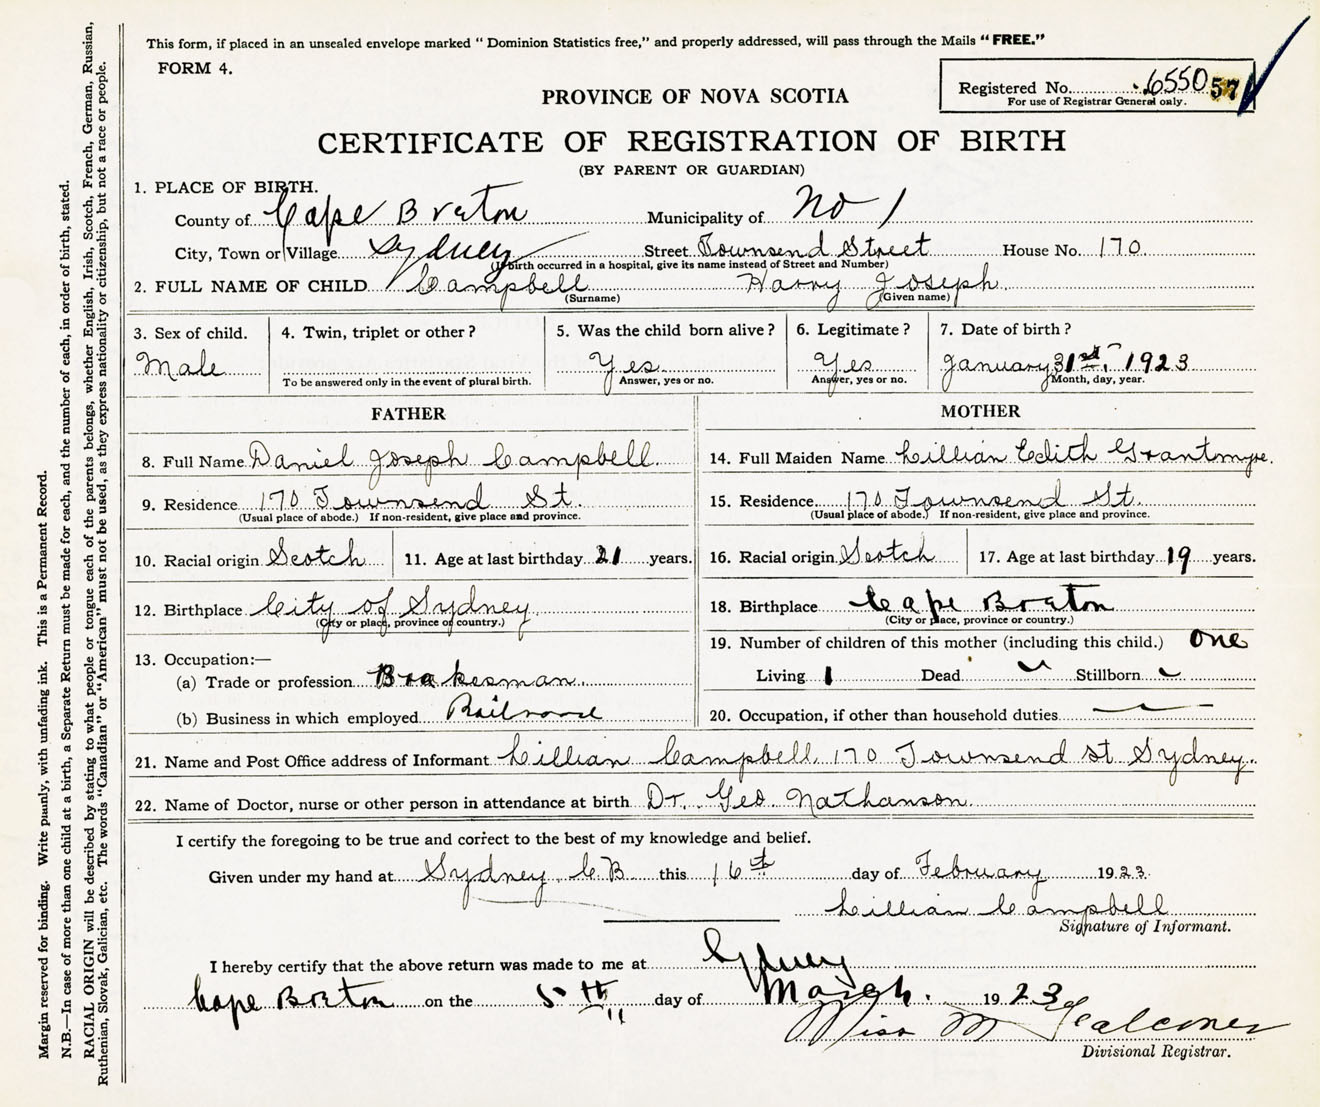 This form, if placed in an unsealed envelope marked " Dominion Statistics free," and properly addressed, will pass through the Mails "FREE."
FORM 4.
Registered No. 6550 57
For use of Registrar General only.
PROVINCE OF NOVA SCOTIA
CERTIFICATE OF REGISTRATION OF BIRTH
(BY PARENT OR GUARDIAN)
1. PLACE OF BIRTH.
County of Cape Breton Municipality of No 1
City, Town or Village Sydney Street Townsend Street House No. 170
(If birth occurred in a hospital, give its name instead of Street and Number)
2. FULL NAME OF CHILD Campbell Harry Joseph
(Surname) (Given name)
3. Sex of child. 4. Twin, triplet or other? 5. Was the child born alive? 6. Legitimate? 7. Date of birth?
Male Yes Yes January 31st, 1923
To be answered only in the event of plural birth. Answer, yes or no. Answer, yes or no. Month, day, year.
FATHER MOTHER
8. Full Name Daniel Joseph Campbell 14. Full Maiden Name Lillian Edith Grantmyre.
9. Residence 170 Townsend St. 15. Residence 170 Townsend St.
(Usual place of abode.) If non-resident, give place and province. (Usual place of abode.) If non-resident, give place and province.
10. Racial origin Scotch 11. Age at last birthday 21 years. 16. Racial origin Scotch 17. Age at last birthday 19 years.
12. Birthplace City of Sydney 18. Birthplace Cape Breton
(City or place, province or country.) (City or place, province or country.)
19. Number of children of this mother (including this child.) one
13. Occupation:—
(a) Trade or profession Brakesman. Living 1 Dead Stillborn
(b) Business in which employed Railroad 20. Occupation, if other than household duties
21. Name and Post Office address of Informant Lillian Campbell, 170 Townsend st Sydney.
22. Name of Doctor, nurse or other person in attendance at birth Dr. Geo Nathanson
I certify the foregoing to be true and correct to the best of my knowledge and belief.
Given under my hand at Sydney C.B this 16th day of February 1923.
Lillian Campbell
Signature of Informant.
I hereby certify that the above return was made to me at Sydney
Cape Breton on the 5th day of March. 1923
Miss M Falconer
Divisional Registrar.
Margin reserved for binding. Write plainly, with unfading ink. This is a Permanent Record.
N.B.—In case of more than one child at a birth, a Separate Return must be made for each, and the number of each, in order of birth, stated.
RACIAL ORIGIN will be described by stating to what people or tongue each of the parents belongs, whether English, Irish, Scotch, French, German, Russian,
Ruthenian, Slovak, Galician, etc. The words "Canadian" or "American" must not be used, as they express nationality or citizenship, but not a race or people.